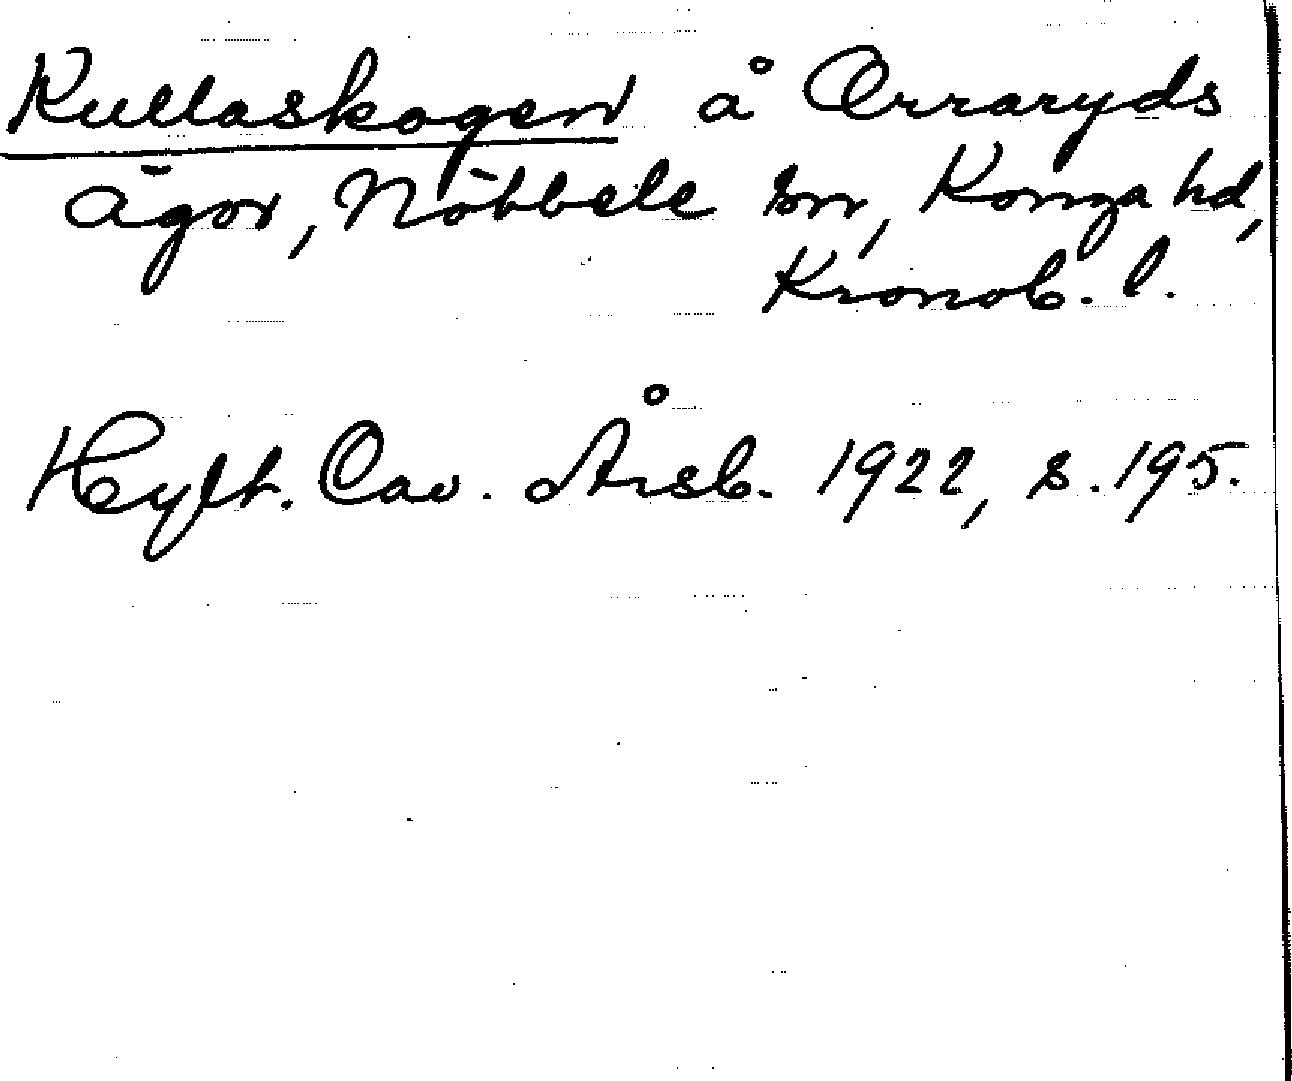 Kullaskogen å Orraryds
ägor, Nöbbele sn, Konga hd,
Kronob. l.
Hylt. Cav. Årsb. 1922, s. 195.